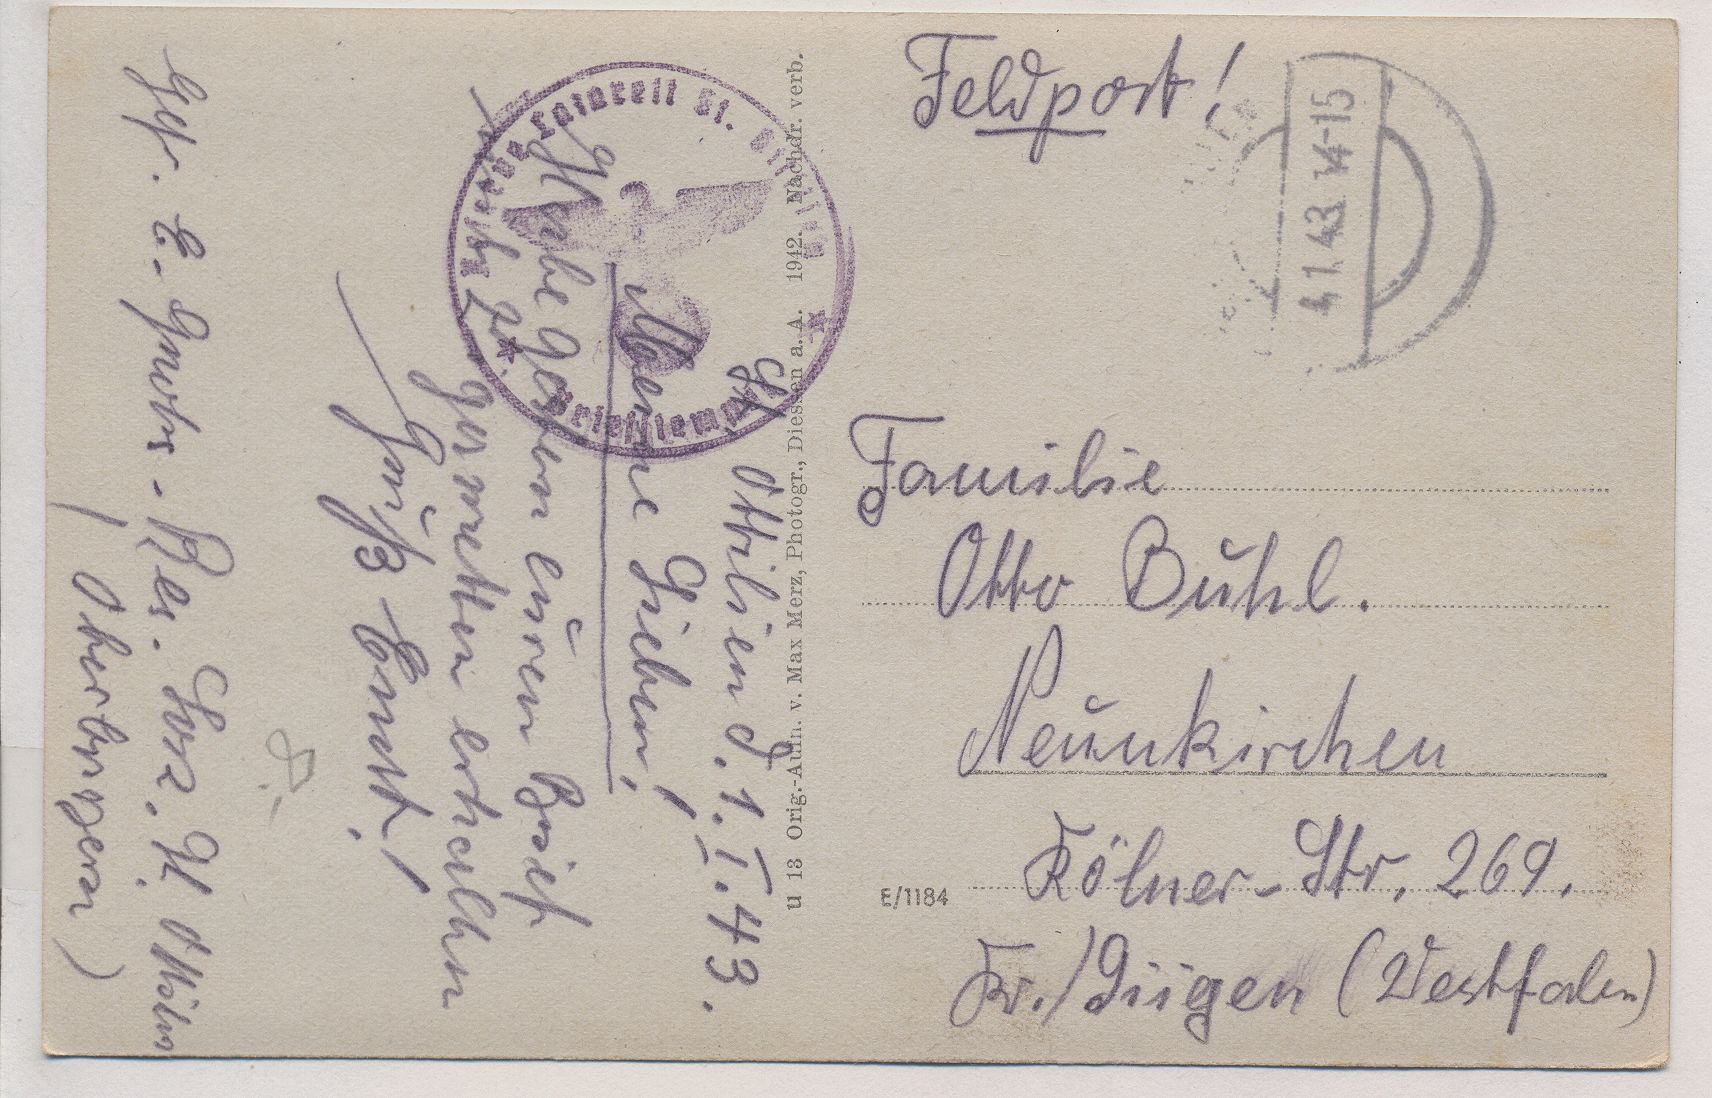 Feldpost!
4.1.43 14-15
Familie
Otto Buhl.
Neunkirchen
Kölner-Str. 269.
Kr./Siegen (Westfalen)
E/1184
u 13 Orig.-Aufn. v. Max Merz, Photogr., Diessen a. A. 1942. Nachdr. verb.
St. Ottilien d. 1.I.43.
Meine Lieben!
Habe gestern euren Brief
erhalten
Gruß Ernst!
Gefr. E. - Res. Laz. St. Ottilien
(Oberbayern)
Reserve-Lazarett St. Ottilien
Briefstempel